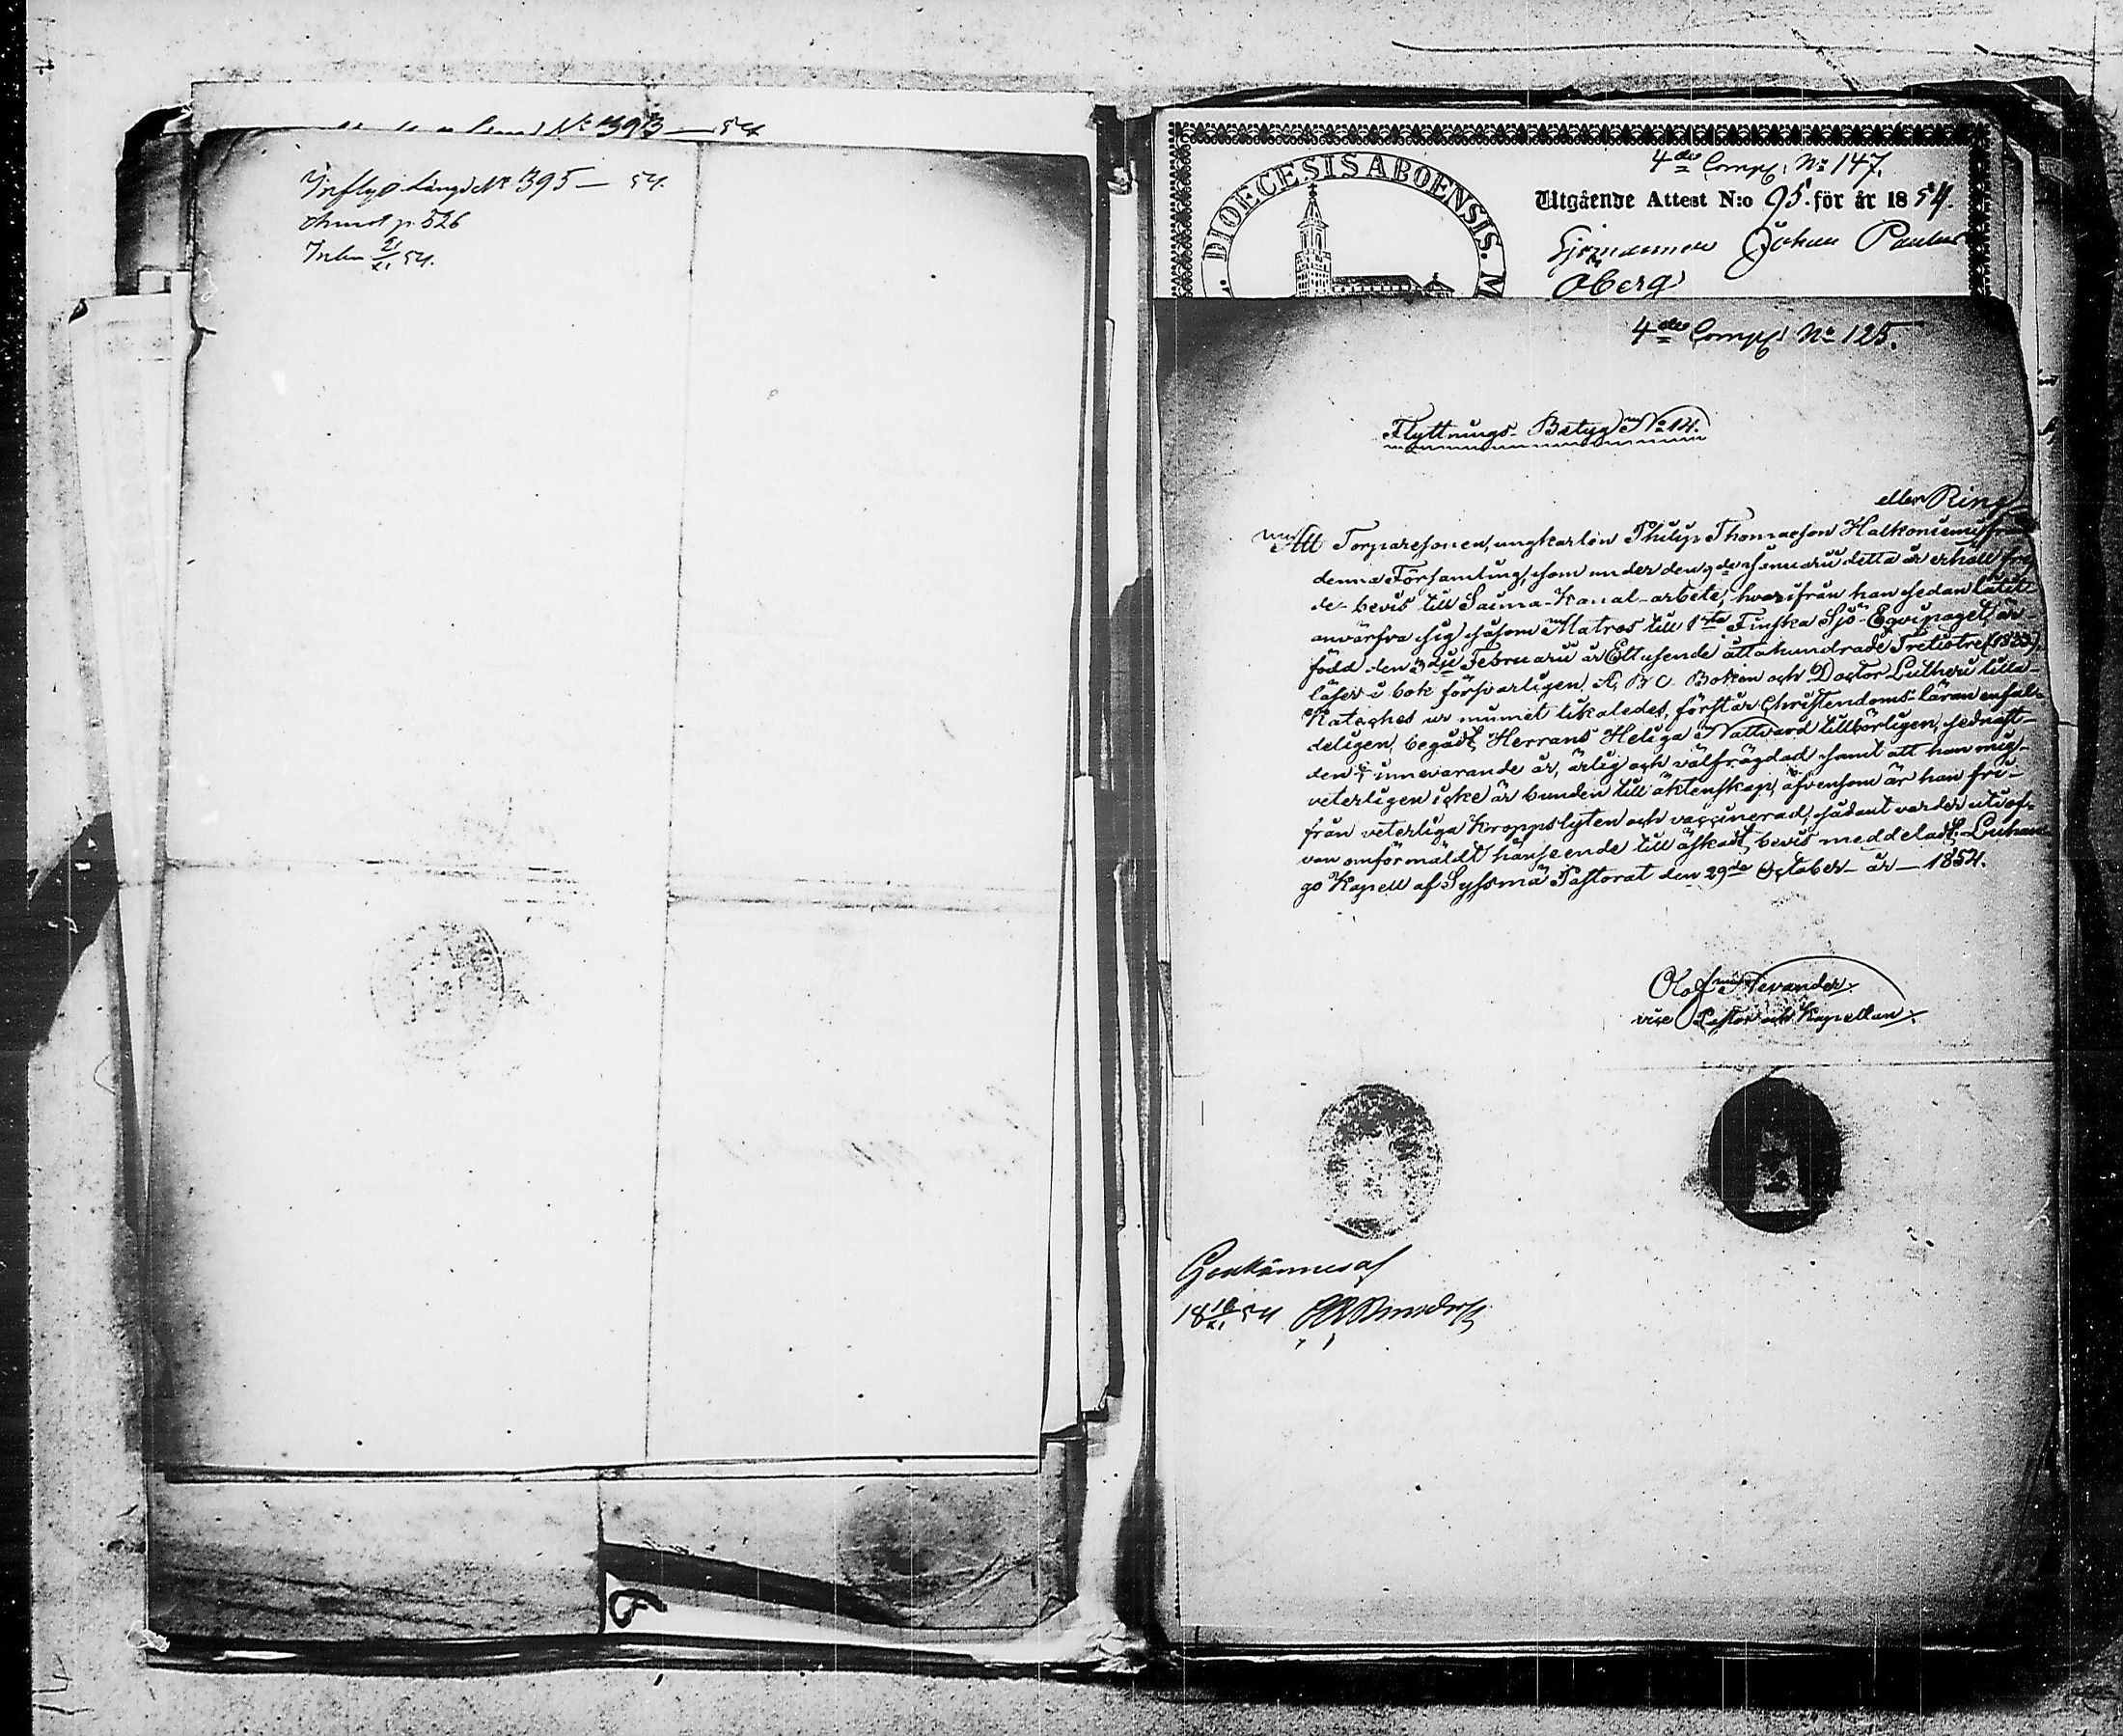 N:o 393 — 54
Inflyt. Längd N:o 395 — 54.
p. 526
Inlem 21/XI 54.
4de Comp. N:o 147.
DIOECESIS ABOENSIS. M
Utgående Attest N:o 95. för år 1854.
Sjömannen Johan Paulus
Öberg
4de Comp. N:o 125.
Flyttnings-Betyg N:o 14.
eller Ring
Att Torparesonen, ungkarlen Philip Thomasson Halkoniemi från
denna Församling, som under den 9de Januarii detta år erhöll frej-
de-bevis till Saima-Kanal-arbete, hvarifrån han sedan låtit
anvärfva sig såsom Matros till 1sta Finska Sjö-Eqvipaget, är
född den 3dje Februarii år Ettusende åttahundrade Trettiotre (1833),
läser i bok försvarligen, A, B C Boken och Doctor Lutheri lilla
Kateches ur minnet likaledes, förstår Christendoms-läran enfal-
deligen, begått Herrans Heliga Nattvard tillbörligen, sednast
den innevarande år, ärlig och välfrägdad samt att han mig
veterligen icke är bunden till äktenskap, äfvensom är han fri
från veterliga kroppslyten och vaccinerad; sådant varder uti of-
van omförmäldt hänseende till äskadt bevis meddeladt. Luhan-
go Kapell af Sysmä Pastorat den 29de October år 1854.
Olof Nevander.
vice Pastor och Kapellan.
Godkännes af
18 18/XI 54